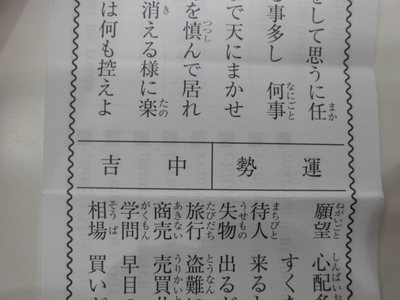 をして思うに任
まか
事多し 何事
なにごと
で天にまかせ
を慎んで居れ
つつし
消える様に楽
き たの
は何も控えよ
運勢
中吉
願望 心配
ねがいごと しんぱい
すく
待人 来る
まちびと
失物 出る
うせもの
旅行 盗難に
たびだち とうなん
商売 売買
あきない うりかい
学問 早目の
がくもん
相場 買い
そうば